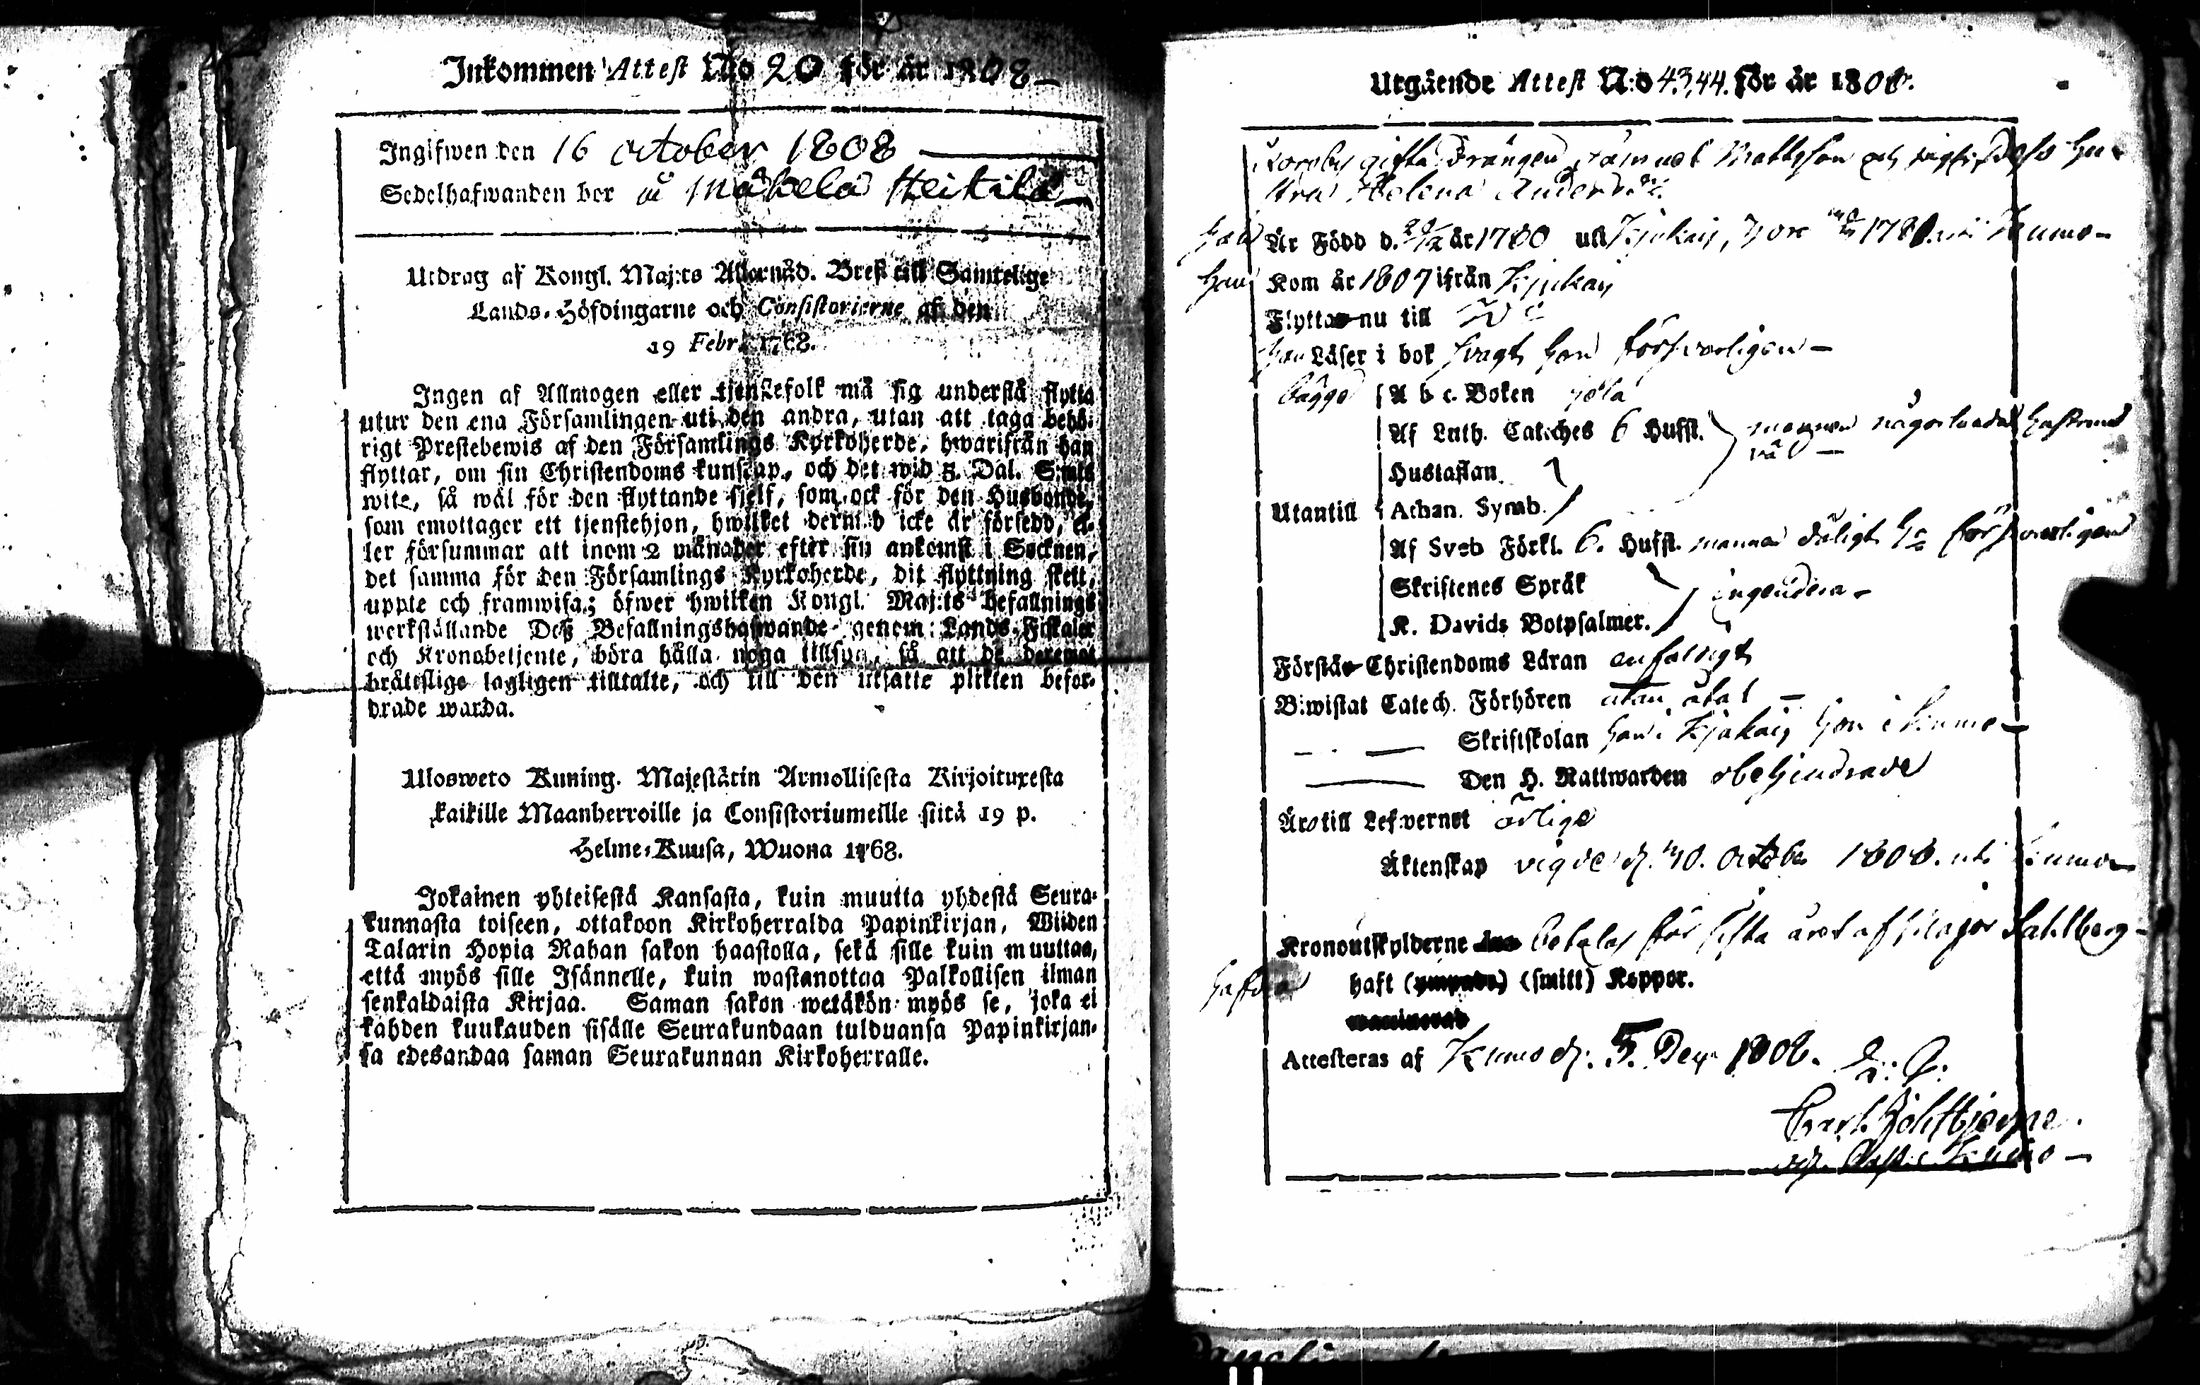 Inkommen Attest No 20 för år 1808
Ingifwen den 16 october 1808
Sedelhafwanden bor å Mäkelä Heikilä
Utdrag af Kongl. Maj:ts Allernåd. Bref till Samtelige
Lands-Höfdingarne och Consistorierne af den
19 Febr. 1768.
Ingen af Allmogen eller tjenstefolk må sig understå flytta
utur den ena Församlingen uti den andra, utan att taga behö-
rigt Prestebewis af den Församlings Kyrkoherde, hwarifrån han
flyttar, om sin Christendoms kunskap, och det wid 5. Dal. S:mts
wite, så wäl för den flyttande sjelf, som ock för den Husbonde,
som emottager ett tjenstehjon, hwilket dermed icke är försedd, el-
ler försummar att inom 2 månader efter sin ankomst i Socknen,
det samma för den Församlings Kyrkoherde, dit flyttning skett,
uppte och framwisa; öfwer hwilken Kongl. Maj:ts befallnings
werkställande Deß Befallningshafwande genom Lands-Fiskaler
och Kronobetjente, böra hålla noga tillsyn, så att de deremot
bråttslige lagligen tilltalte, och till den utsatte plikten befor-
drade warda.
Ulosweto Kuning. Majestätin Armollisesta Kirjoituxesta
kaikille Maanherroille ja Consistoriumeille siitä 19 p.
Helme-Kuusa, Wuona 1768.
Jokainen yhteisestä Kansasta, kuin muutta yhdestä Seura-
kunnasta toiseen, ottakoon Kirkoherralda Papinkirjan, Wiiden
Talarin Hopia Rahan sakon haastolla, sekä sille kuin muuttaa,
että myös sille Isännelle, kuin wastanottaa Palkollisen ilman
senkaldaista Kirjaa. Saman sakon wetäkön myös se, joka ei
kahden kuukauden sisälle Seurakundaan tulduansa Papinkirjan-
sa edesandaa saman Seurakunnan Kirkoherralle.
Utgående Attest N:o 43, 44. för år 1808.
gifta Drängen Samuel Mattsson och Hu-
stru Helena Andersdr.
Är Född d. år 1780 uti Kjukais, hon 1780 uti Kumo
Han Kom år 1807 ifrån Kjukais
Flyttar nu till
Han Läser i bok svagt hon försvarligen
bägge A b c. Boken
Af Luth. Catches 6 Hufst. mannen någorlunda hustrun
väl
Hustaflan
Utantill Athan. Symb.
Af Sveb Förkl. 6. Hufst. mannen dåligt hon försvarligen
Skriftenes Språk
K. Davids Botpsalmer. ingendera
Förstår Christendoms Läran enfaldigt
Biwistat Catech. Förhören utan åtal
Skriftskolan han i Kjukais hon i Kumo
Den H. Nattwarden obehindrade
Äro till Lefvernet ärlige
Äktenskap vigde d. 30. October 1808. uti Kumo
Kronoutskylderne betalas för sista året af Major Sahlberg
Hafva haft (ympade) (smitt) Koppor.
Attesteras af Kumo d. 5. Dec. 1808.